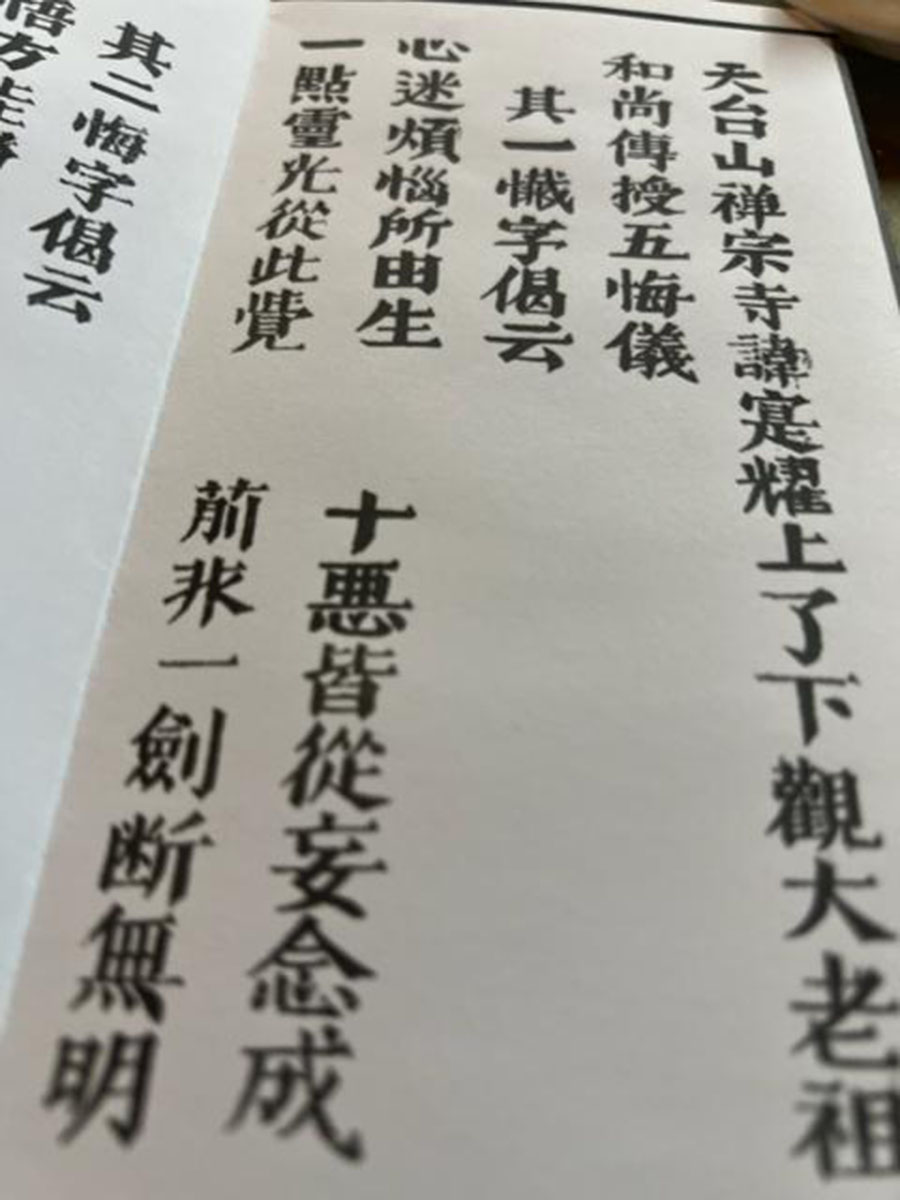 天台山禅宗寺諱寔耀上了下觀大老祖
和尚傳授五悔儀
其一懺字偈云
心迷煩惱所由生
十悪皆從妄念成
一點靈光從此覺
前非一劍断無明
其二悔字偈云
悟方